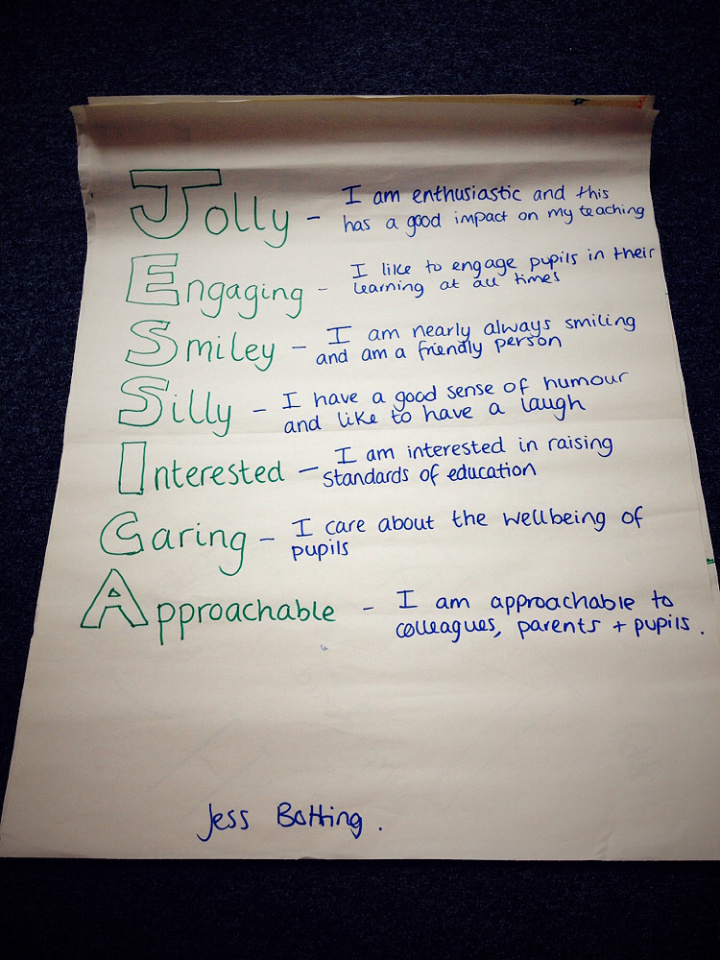 Jolly - I am enthusiastic and this
has a good impact on my teaching
Engaging - I like to engage pupils in their
learning at all times
Smiley - I am nearly always smiling
and am a friendly person
Silly - I have a good sense of humour
and like to have a laugh
Interested - I am interested in raising
standards of education
Caring - I care about the wellbeing of
pupils
Approachable - I am approachable to
colleagues, parents + pupils.
Jess Botting.